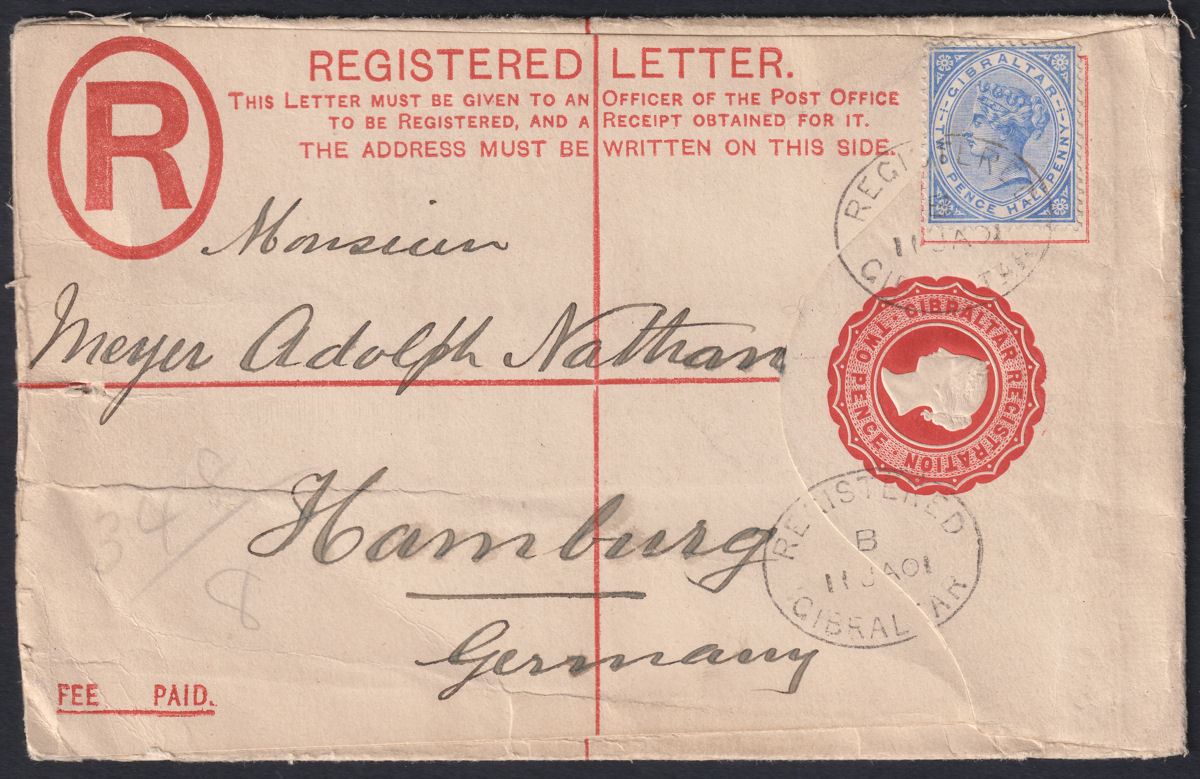 R
REGISTERED LETTER.
THIS LETTER MUST BE GIVEN TO AN OFFICER OF THE POST OFFICE
TO BE REGISTERED, AND A RECEIPT OBTAINED FOR IT.
THE ADDRESS MUST BE WRITTEN ON THIS SIDE.
GIBRALTAR
TWO PENCE HALFPENNY
REGISTERED
11 JA 01
GIBRALTAR
Monsieur
Meyer Adolph Nathan
GIBRALTAR REGISTRATION
TWO PENCE
Hamburg
Germany
REGISTERED
B
11 JA 01
GIBRALTAR
34
8
FEE PAID.